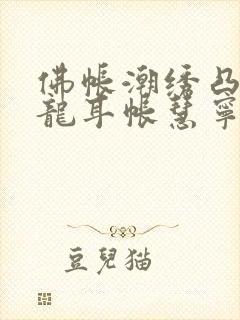 佛帳潮绣凸
龍耳帳慧寧
豆兒猫